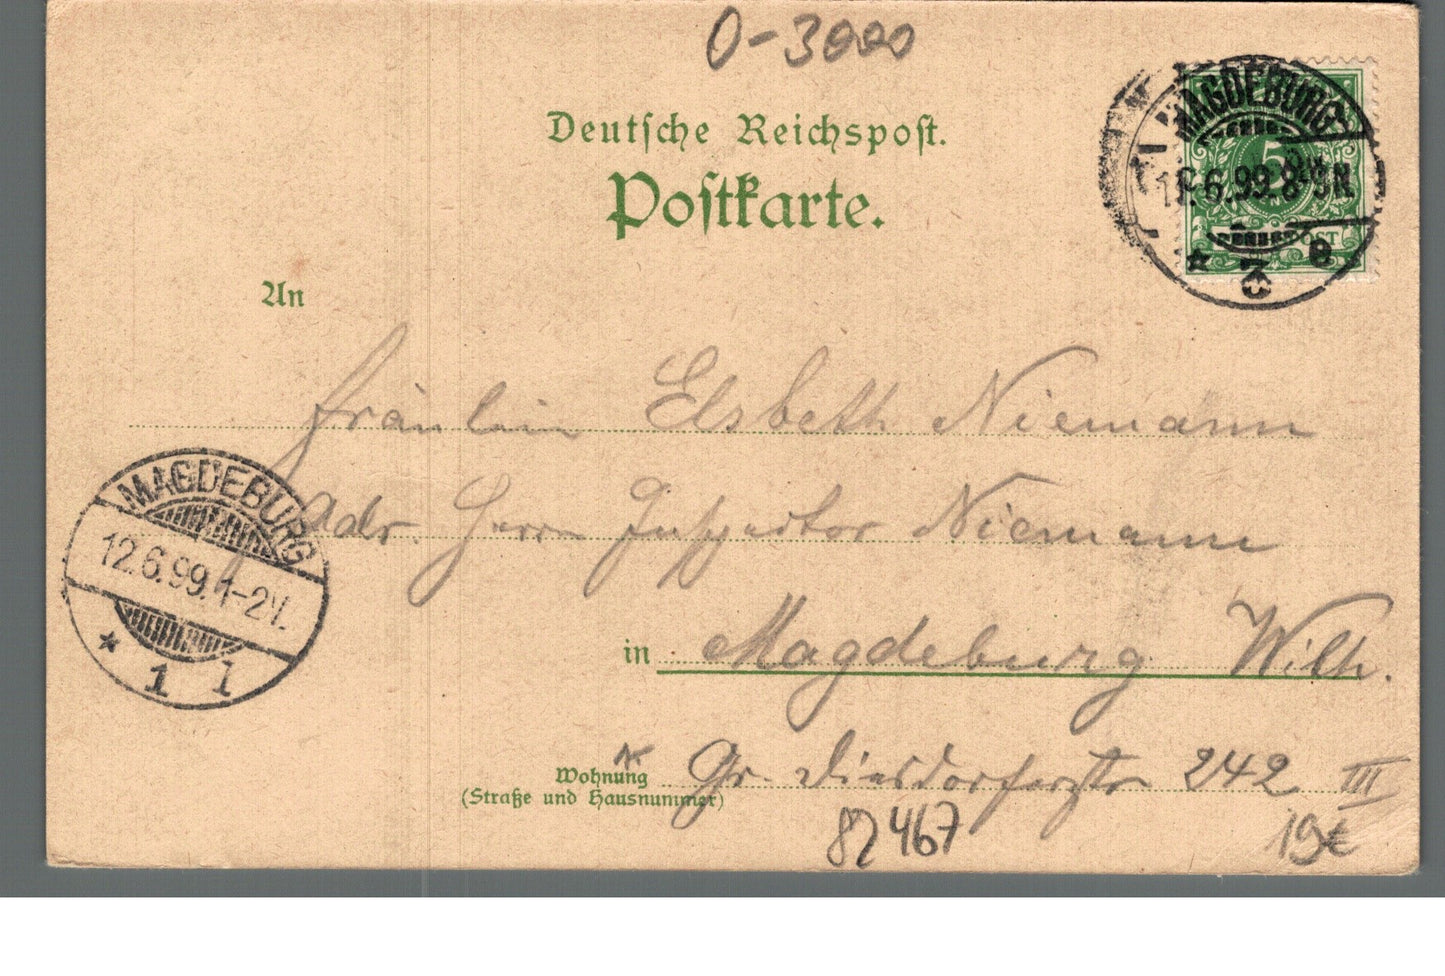 0-3000
Deutsche Reichspost.
Postkarte.
MAGDEBURG
6.99.8-9N.
* 3 e
5
POST
An
Fräulein Elsbeth Niemann
Adr. Herrn Inspektor Niemann
in Magdeburg Wilh.
Wohnung Gr. Diesdorferstr 242 III
(Straße und Hausnummer)
MAGDEBURG
12.6.99.1-2V.
* 1 l
82467
19€